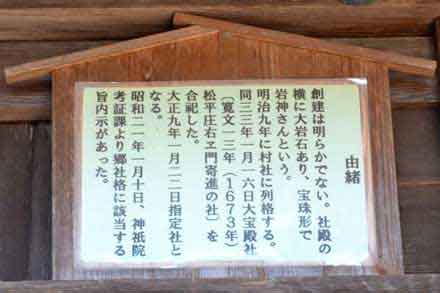 由緒
創建は明らかでない。社殿の
横に大岩石あり、宝珠形で
岩神さんという。
明治九年に村社に列格する。
同三三年一月一六日大宝殿社
（寛文一三年（1673年）
松平庄右ヱ門寄進の社）を
合祀した。
大正九年一月二二日指定社と
なる。
昭和二一年一月十日、神祇院
考証課より郷社格に該当する
旨内示があった。